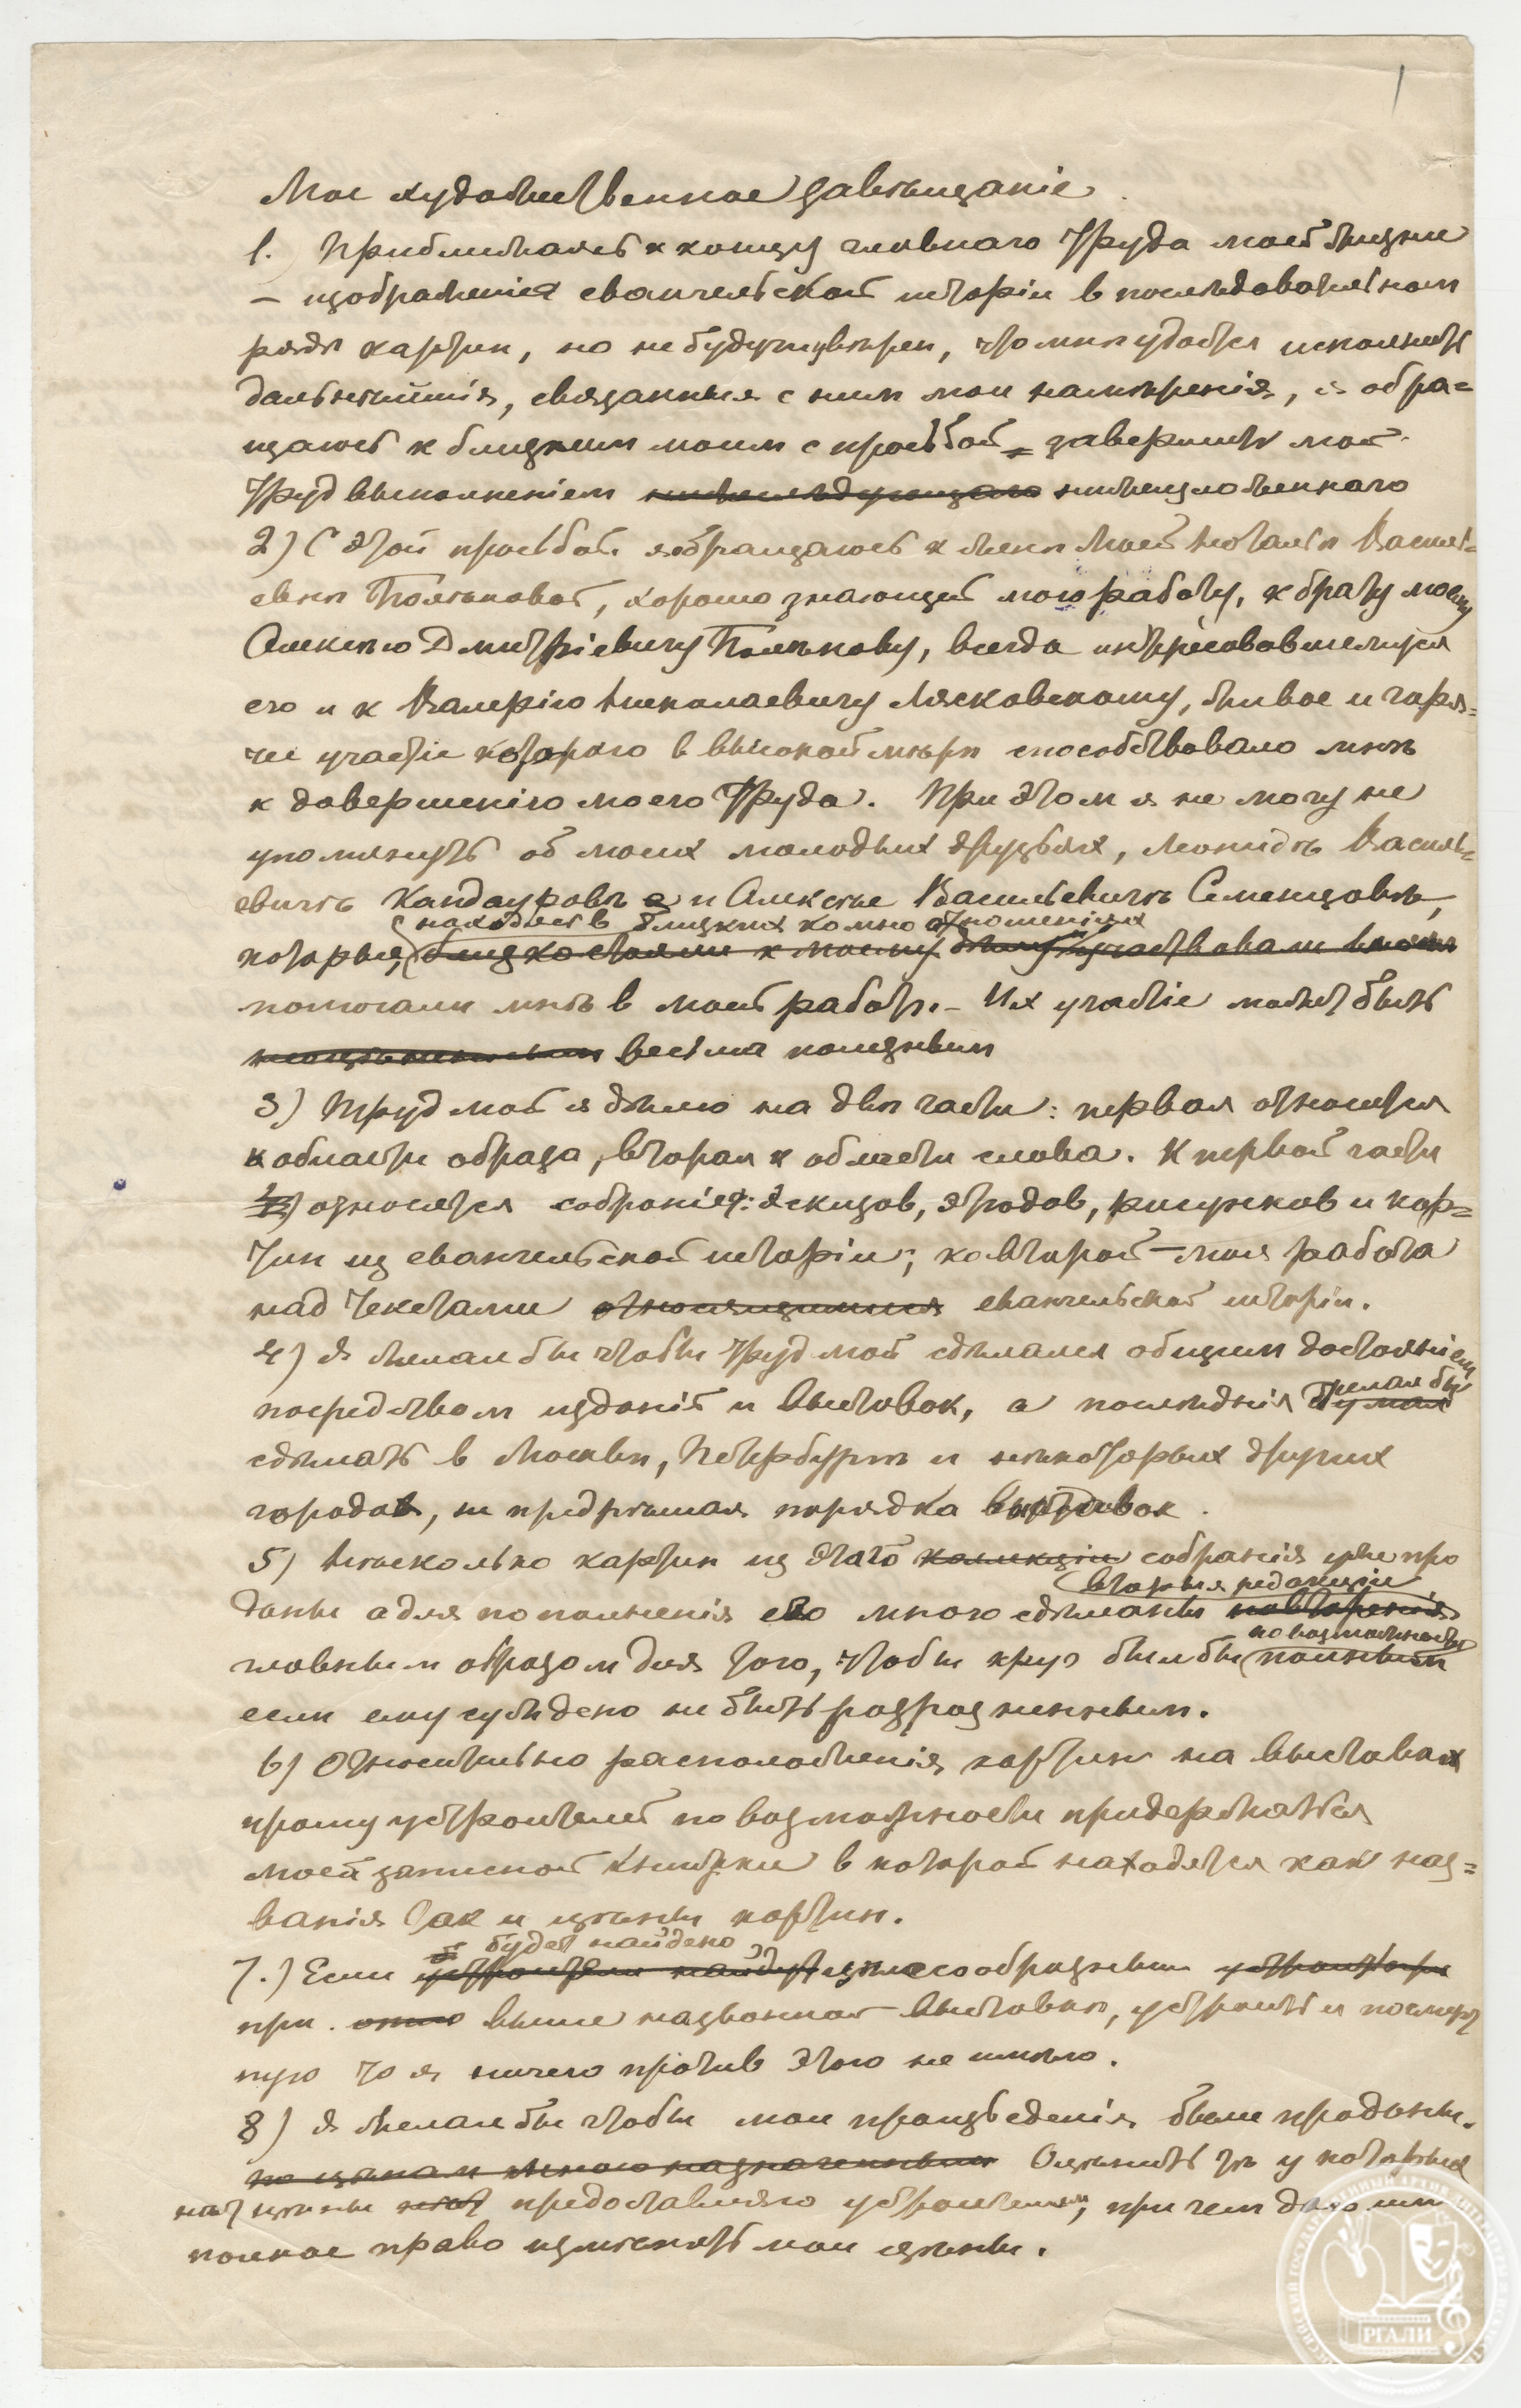 1
Мое художественное завѣщаніе.
1. Приближаясь к концу главнаго труда моей жизни
– изображенія евангельской исторіи в последовательном
рядѣ картин, но не будучи увѣрен, что мнѣ удастся исполнить
дальнѣйшія, связанныя с ним мои намѣренія, я обра=
щаюсь к близким моим с просьбой = завершить мой
труд выполнением нижеслѣдующаго нижеизложеннаго
2) С этой просьбой я обращаюсь к женѣ моей Наталіи Василь=
евнѣ Полѣновой, хорошо знающей мою работу, к брату моему
Алексѣю Дмитріевичу Полѣнову, всегда интересовавшемуся
ею и к Валерію Николаевичу Лясковскому, живое и горя=
чее участіе котораго в высокой мѣрѣ способствовало мнѣ
к довершенію моего труда. При этом я не могу не
упомянуть об моих молодых друзьях, Леонидѣ Василь=
евичѣ Кандауровѣ и Алексѣе Васильевичѣ Семенцовѣ,
находясь в близких ко мнѣ отношеніях
которые, близко стояли к моему дѣлу и участвовали
помогали мнѣ в моей работѣ. – Их участіе может быть
весьма полезным
3) Труд мой я дѣлю на двѣ части: первая относится
к области образа, вторая к области слова. К первой части
относятся собраніе: эскизов, этюдов, рисунков и кар=
тин из евангельской исторіи; ко второй – моя работа
над текстами относящимися евангельской исторіи.
4) Я желал бы чтобы труд мой сдѣлался общим достояніем
посредством изданій и выставок, а послѣднія желал бы думал
сдѣлать в Москвѣ, Петербургѣ и нѣкоторых других
городах, не предрѣшая порядка выставок.
5) Нѣсколько картин из этого коллекціи собранія уже про
вторыя редакціи
даны а для пополненія его мною сдѣланы повторенія
по возможности
главным образом для того, чтобы круг был бы полным
если ему суждено не быть разрозненным.
6) Относительно расположенія картин на выставках
прошу устроителей по возможности придержаться
моей записной книжки в которой находятся как наз=
ванія так и цѣны картин.
будет найдено
7.) Если устроители найдут цѣлесообразным устроить
при выше названной выставкѣ, устроить и посмерт
ную то я ничего против этого не имѣю.
8) Я желал бы чтобы мои произведенія были проданы.
по цѣнам мною назначенным Оцѣнить тѣ у которых
нѣт цѣны предоставляю устроителям, при чем даю им
полное право измѣнять мои цѣны.
РГАЛИ